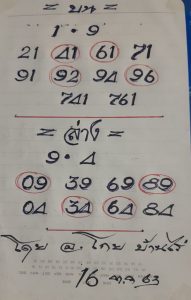 = บน =
1 · 9
21 41 61 71
91 92 94 96
741 761
= ล่าง =
9 · 4
09 39 69 89
04 34 64 84
โดย อ. โกย บ้านไร่
16 ต.ค 63